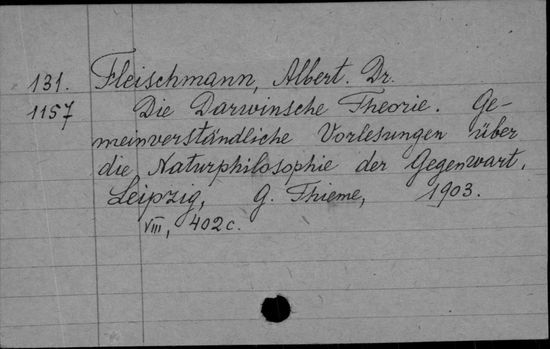 131. Fleischmann, Albert. Dr.
1157 Die Darwinsche Theorie. Ge-
meinverständliche Vorlesungen über
die Naturphilosophie der Gegenwart.
Leipzig, G. Thieme, 1903.
VIII, 402 c.